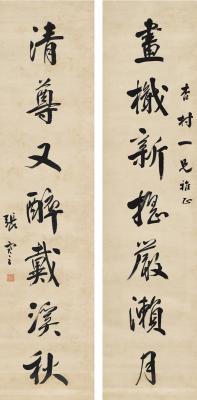 杏村一兄雅正
畫檝新搖嚴瀨月
清尊又醉戴溪秋